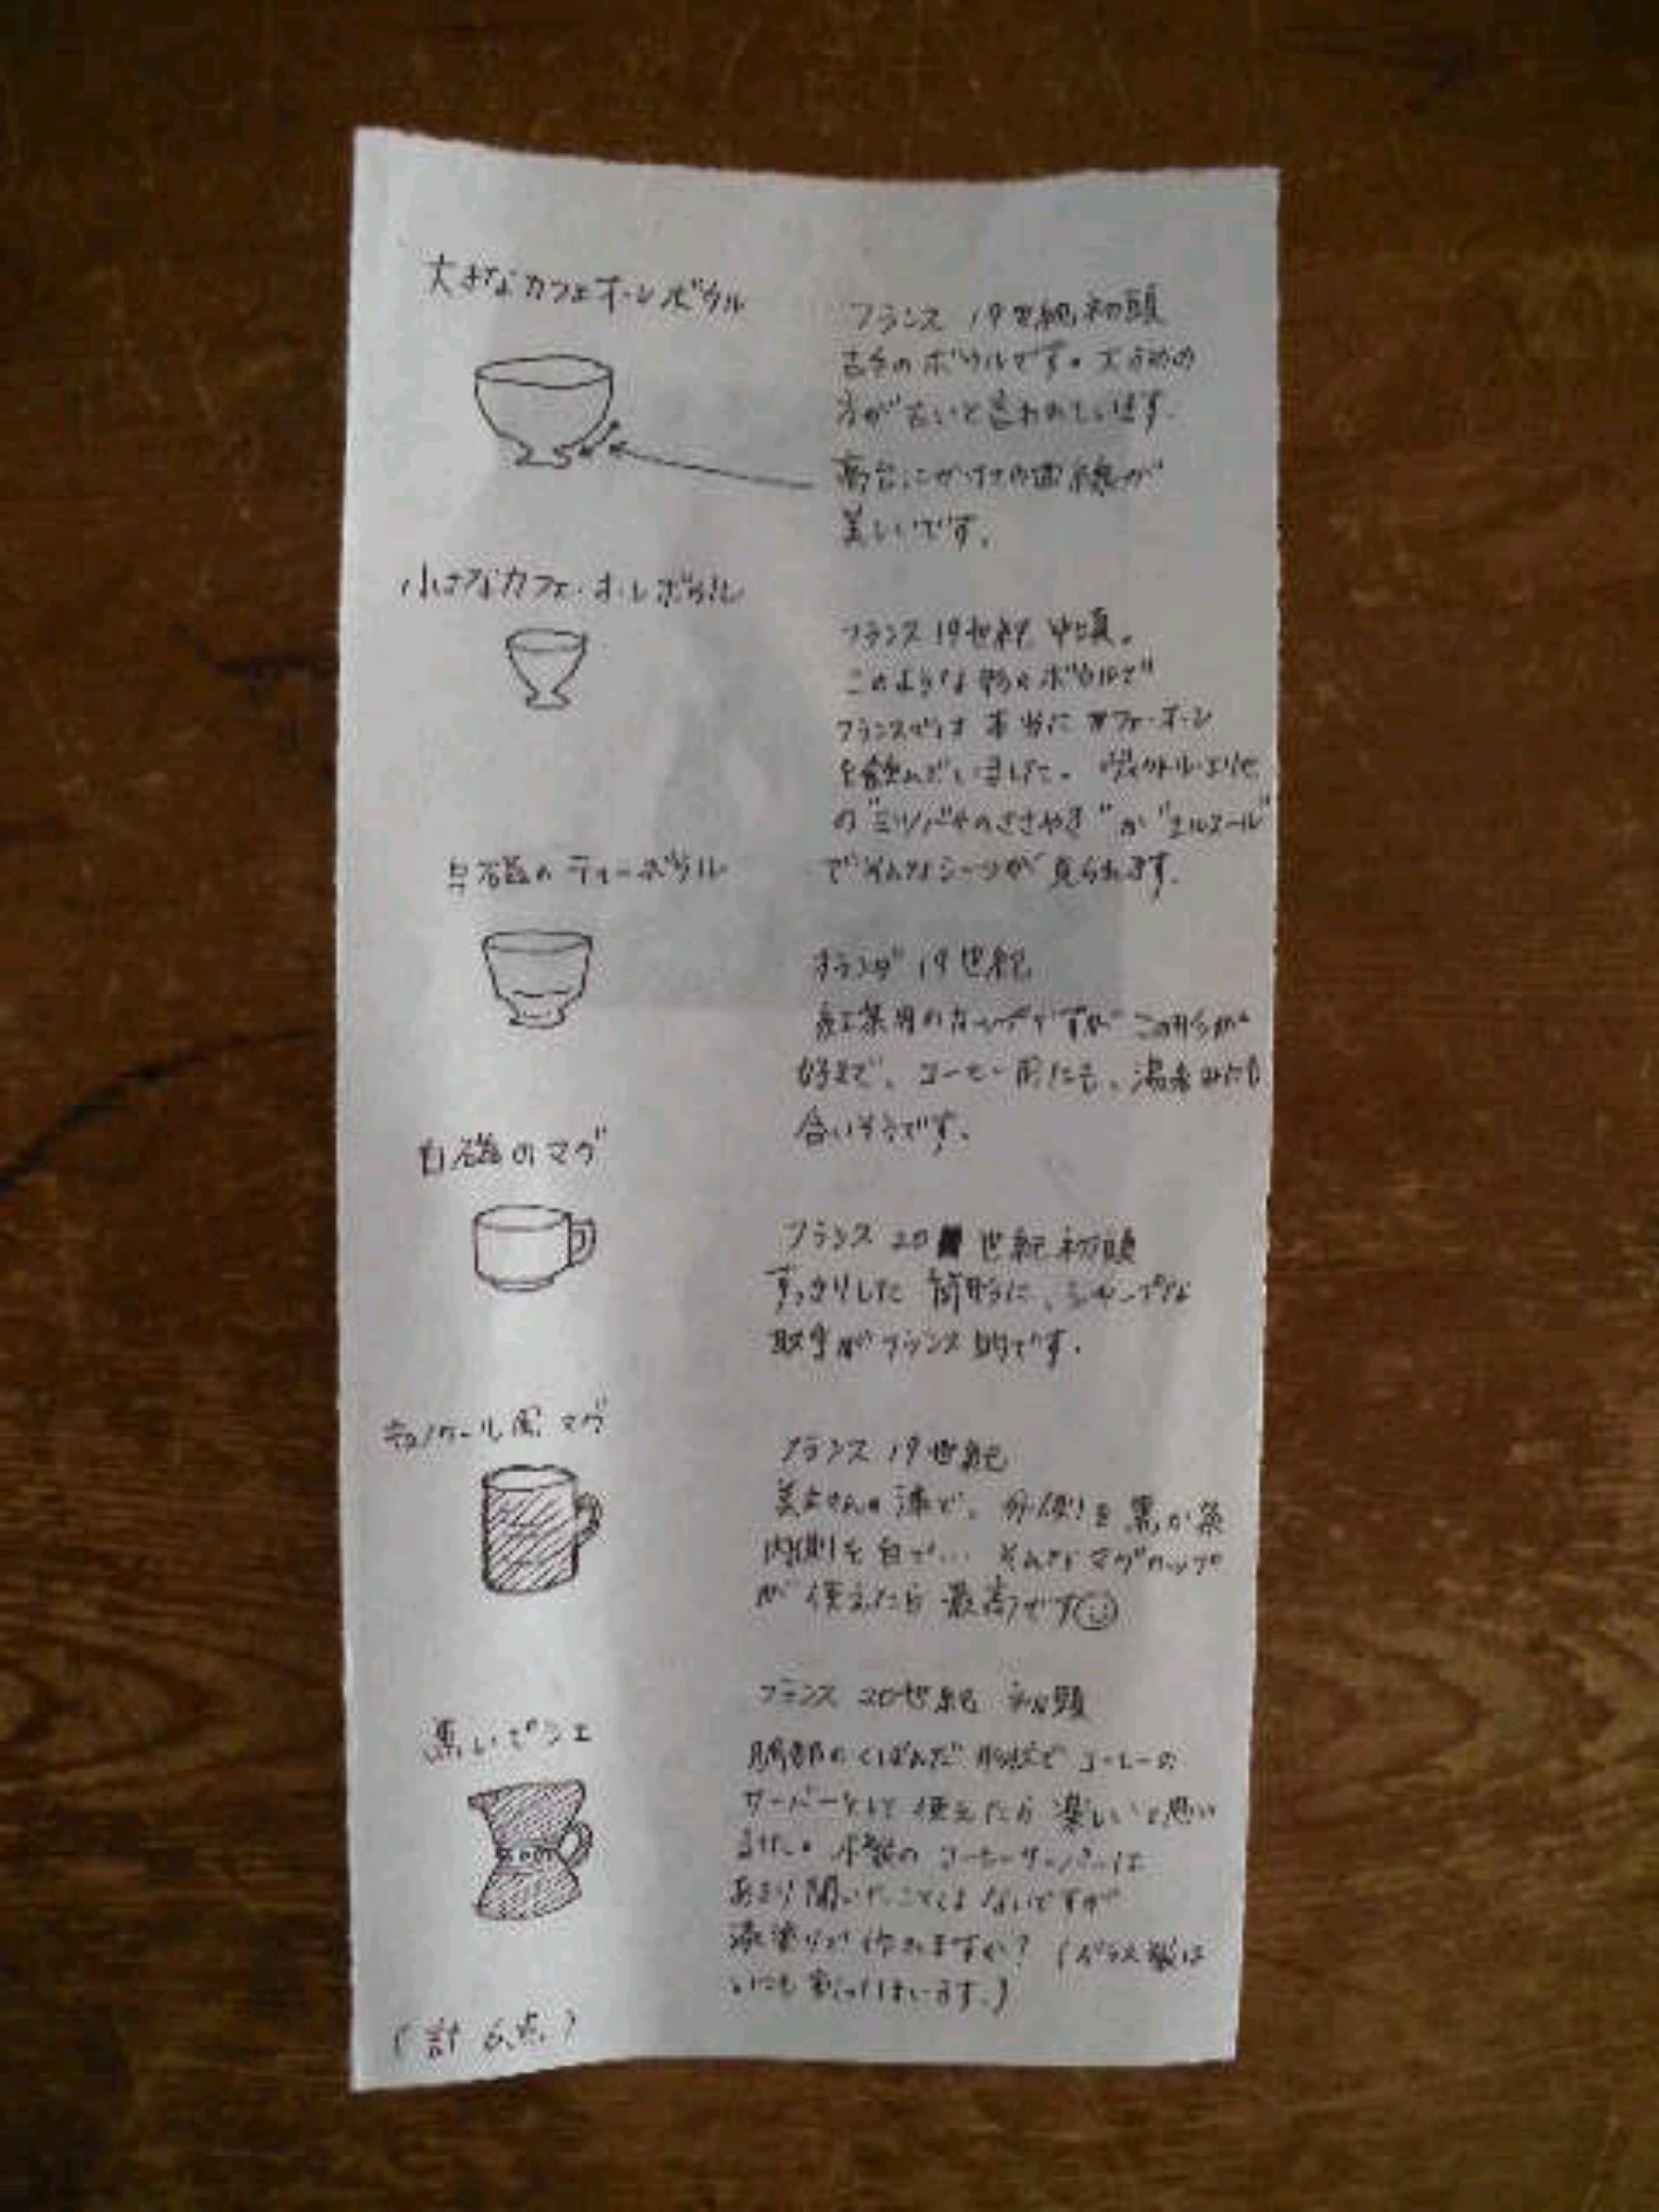 大きなカフェオーレボウル
フランス 19世紀初頭
古手のボウルです。大ぶりの
方が古いと言われています。
高台にかけての曲線が
美しいです。
小さなカフェ・オ・レボウル
フランス 19世紀 中頃。
このような形のボウルで
フランスでは 本当に カフェ・オ・レ
を飲んでいました。 ヴィクトル・エリセ
の"ミツバチのささやき"か"エルスール"
でそんなシーンが 見られます。
白磁のティーボウル
オランダ 19世紀
紅茶用のカップですが この形が
好きで、コーヒー用にも、湯呑みにも
合いそうです。
白磁のマグ
フランス 20 世紀初頭
すっきりした 筒形に、シャープな
取手が フランス的です。
風 マグ
フランス 19世紀
さんの漆で、外側を 黒か
内側を 白で… そんな マグカップ
が 使えたら 最高です
黒いピシェ
フランス 20世紀 初頭
胴部のくぼんだ 形状で コーヒーの
サーバーとして 使えたら 楽しいと思い
ます。木製の コーヒーサーバーは
あまり 聞いたことは ないですが
漆塗りで 作れますか? (ガラス製は
います。)
(計 6点)